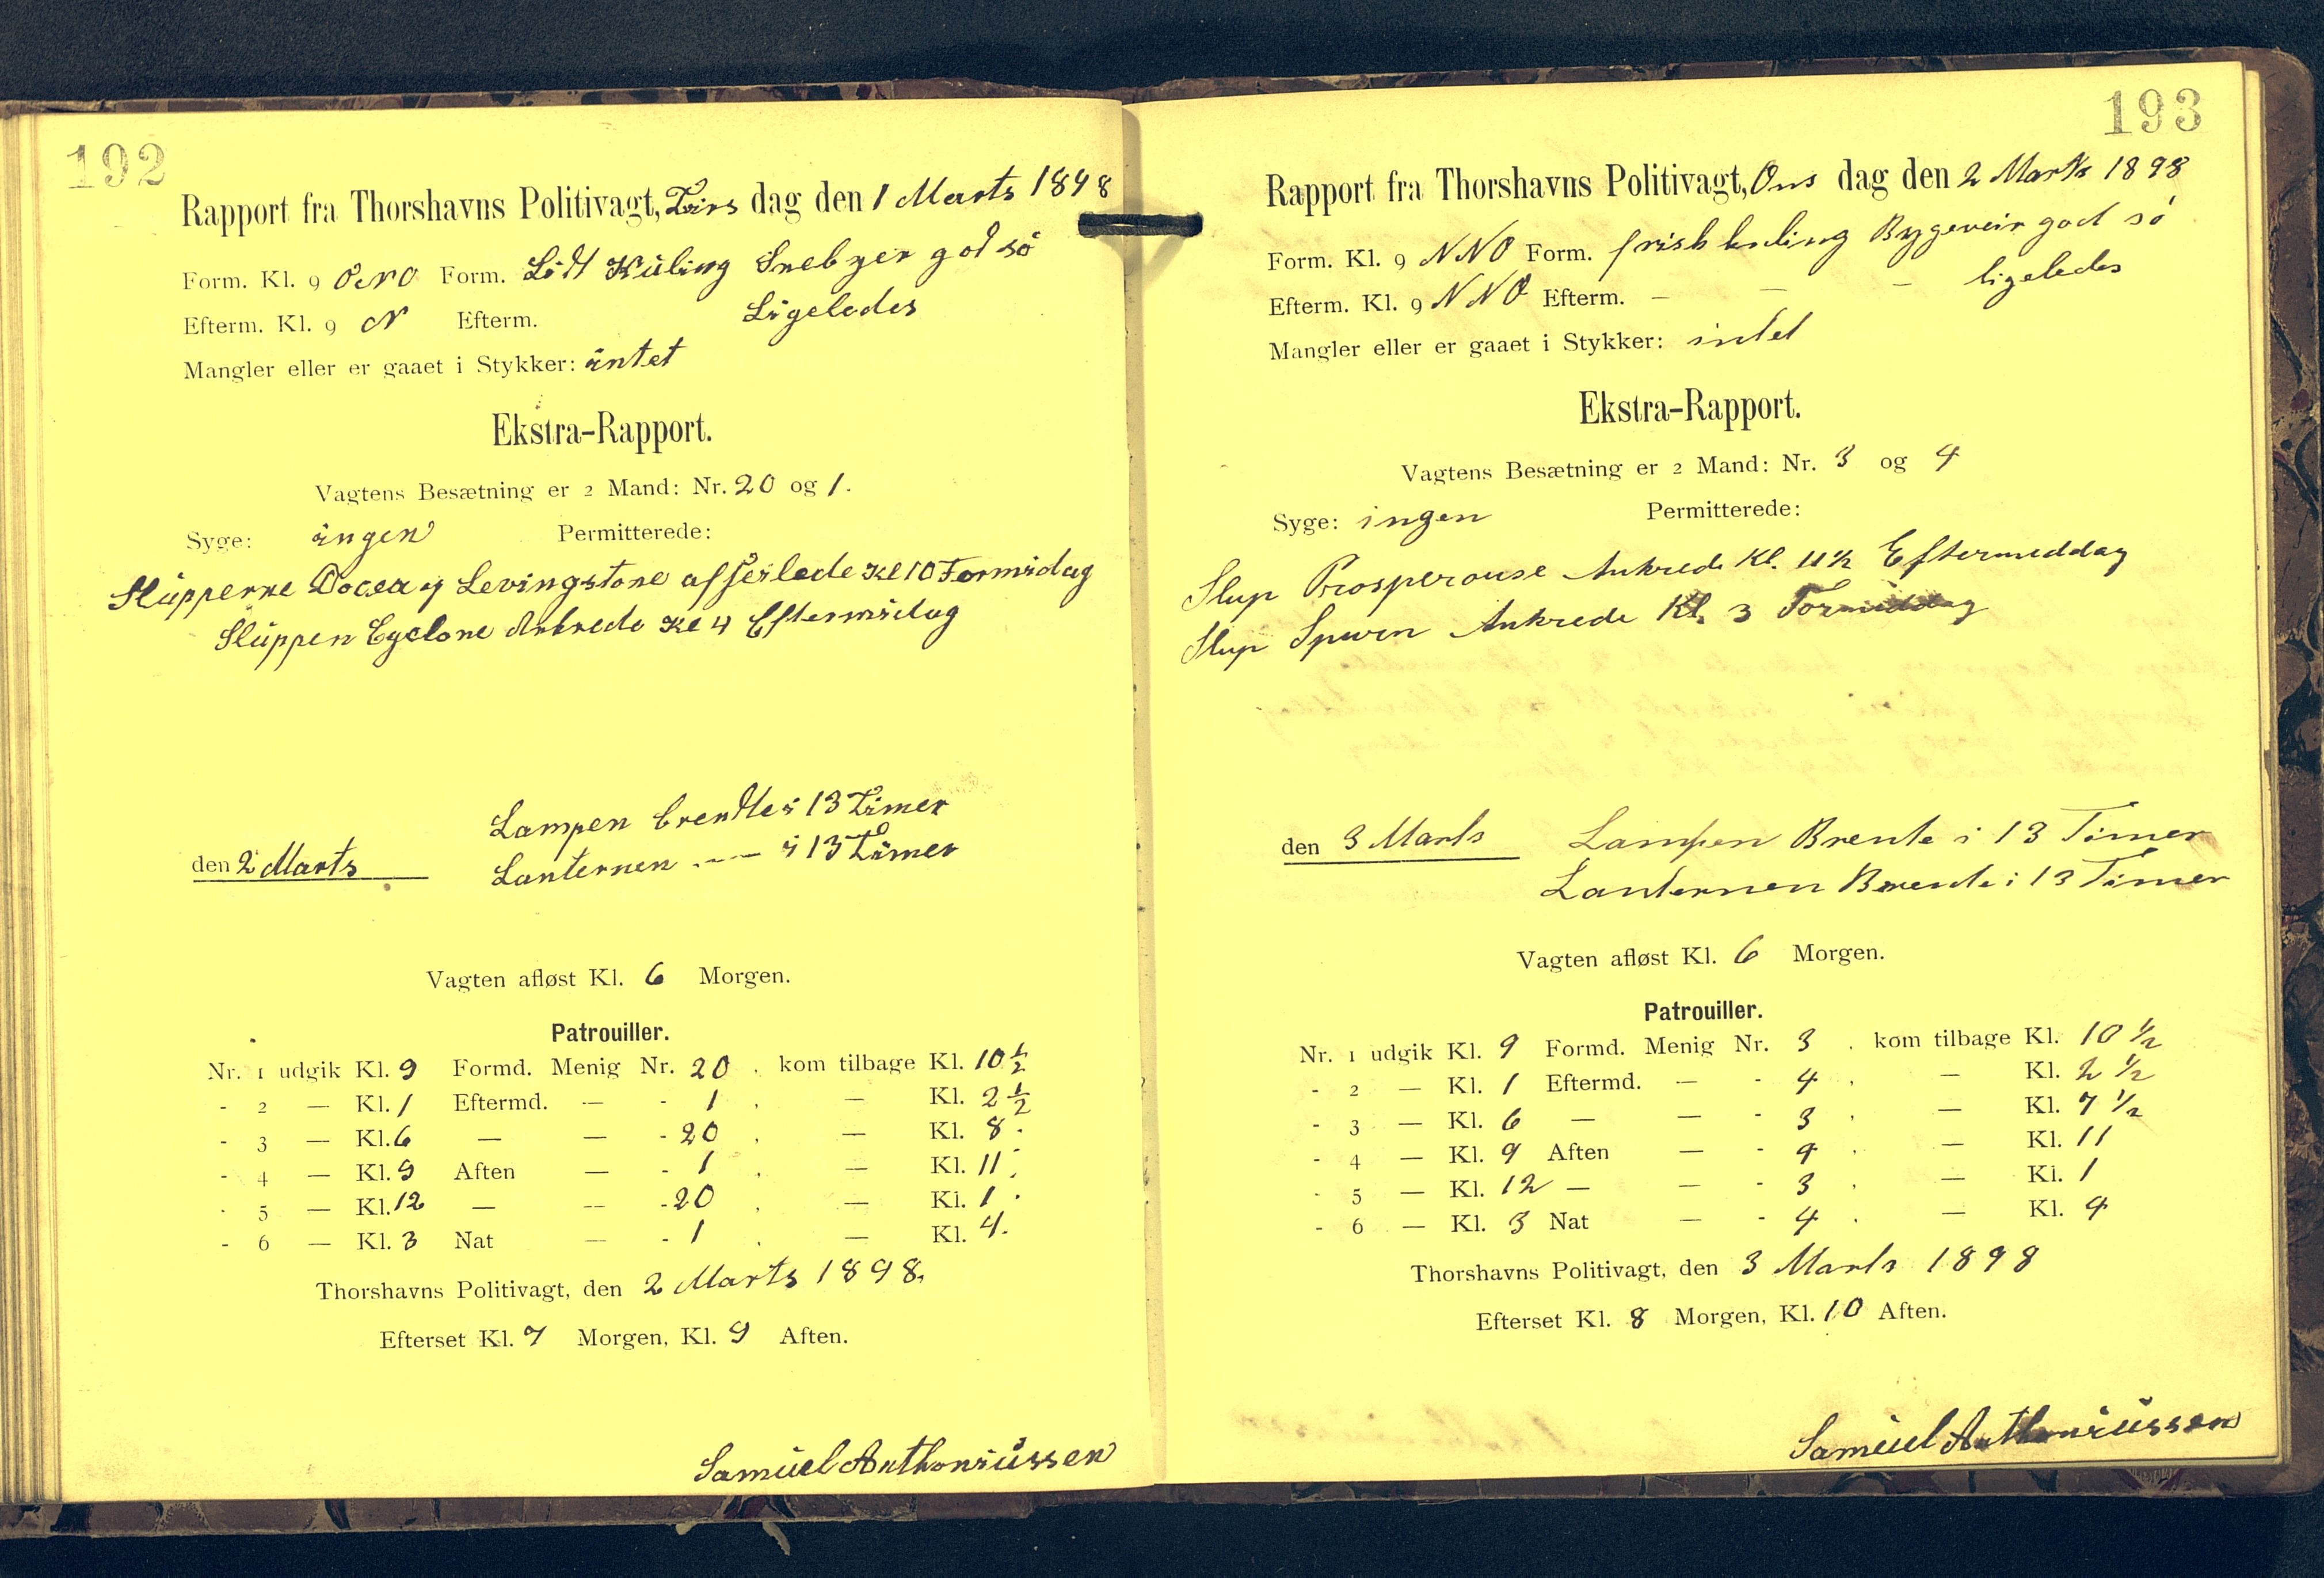 192
Rapport fra Thorshavns Politivagt, Tirs dag den 1 Marts 1898
Form. Kl. 9 ONO Form. Lidt Kuling Snebyer god sö
Efterm. Kl. 9 N Efterm. Ligeledes
Mangler eller er gaaet i Stykker: intet
Ekstra-Rapport.
Vagtens Besætning er 2 Mand: Nr. 20 og 1.
Syge: ingen Permitterede:
Slupperne og Levingstone afseilede Kl 10 Formidag
Sluppen Cyclone Ankrede Kl 4 Eftermidag
Lampen brentte i 13 Timer
den 2 Marts Lanternen -- — i 13 Timer
Vagten afløst Kl. 6 Morgen.
Patrouiller.
Nr. 1 udgik Kl. 9 Formd. Menig Nr. 20 . kom tilbage Kl. 10 1/2
- 2 — Kl. 1 Eftermd. — - 1 . — Kl. 2 1/2
- 3 — Kl. 6 — — - 20 . — Kl. 8.
- 4 — Kl. 9 Aften — - 1 . — Kl. 11.
- 5 — Kl. 12 — — - 20 . — Kl. 1.
- 6 — Kl. 3 Nat — - 1 . — Kl. 4.
Thorshavns Politivagt, den 2 Marts 1898.
Efterset Kl. 7 Morgen, Kl. 9 Aften.
Samüel Anthoniüssen
193
Rapport fra Thorshavns Politivagt, Ons dag den 2 Marts 1898
Form. Kl. 9 NNO Form. frisk kuling Bygeveir god sö
Efterm. Kl. 9 NNO Efterm. — — — ligeledes
Mangler eller er gaaet i Stykker: intet
Ekstra-Rapport.
Vagtens Besætning er 2 Mand: Nr. 3 og 4
Syge: ingen Permitterede:
Slup Prosperouse Ankrede Kl. 11 1/2 Eftermeddag
Slup Spurn Ankrede Kl. 3 Formiddag
den 3 Marts Lampen Brente i 13 Timer
Lanternen Brente i 13 Timer
Vagten afløst Kl. 6 Morgen.
Patrouiller.
Nr. 1 udgik Kl. 9 Formd. Menig Nr. 3 . kom tilbage Kl. 10 1/2
- 2 — Kl. 1 Eftermd. — - 4 . — Kl. 2 1/2
- 3 — Kl. 6 — — - 3 . — Kl. 7 1/2
- 4 — Kl. 9 Aften — - 4 . — Kl. 11
- 5 — Kl. 12 — — - 3 . — Kl. 1
- 6 — Kl. 3 Nat — - 4 . — Kl. 4
Thorshavns Politivagt, den 3 Marts 1898
Efterset Kl. 8 Morgen, Kl. 10 Aften.
Samüel Anthoniüssen